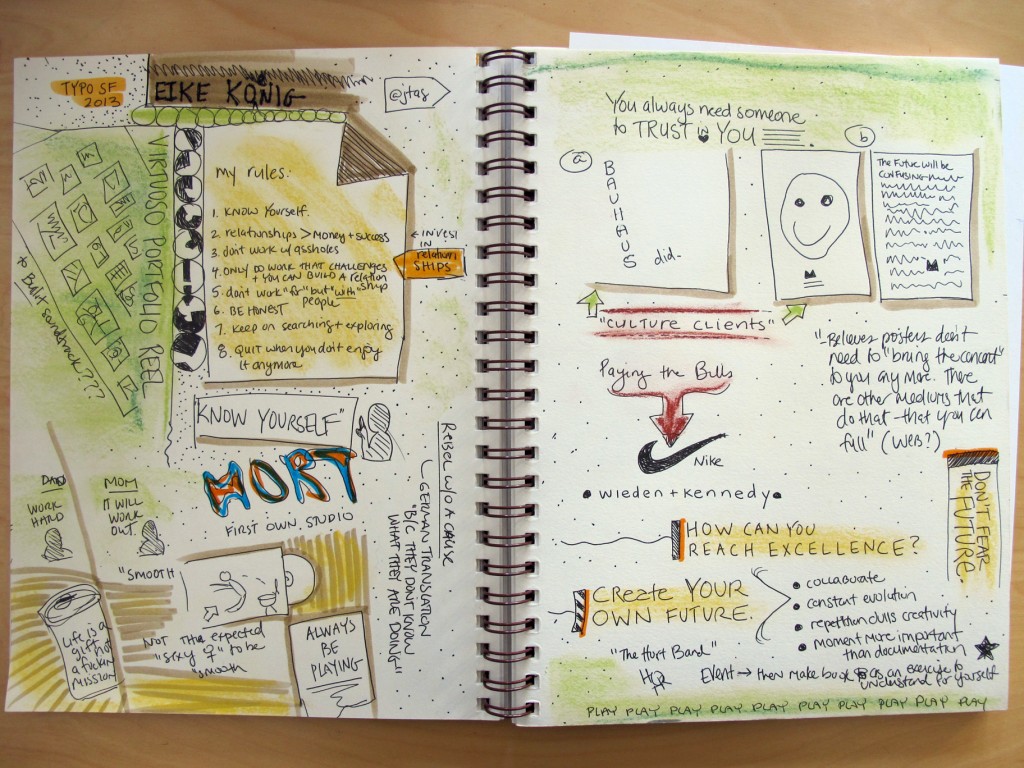 TYPO SF
2013
EIKE KÖNIG
@jtag
VIRTUOSO PORTFOLIO REEL
to Bullit soundtrack???
my rules:
1. KNOW Yourself.
2. relationships > Money + success
3. don't work w/ assholes
4. ONLY DO WORK THAT CHALLENGES
+ YOU CAN BUILD A RELATION
SHIP
5. don't work "for" but "with"
people
6. BE HONEST
7. Keep on searching + exploring
8. QUIT when you don't enjoy
it anymore
← INVEST
IN
relation
SHIPS
KNOW YOURSELF"
HORT
FIRST OWN STUDIO
DAD
WORK
HARD
MOM
IT WILL
WORK
OUT.
REBEL W/O A CAUSE
GERMAN TRANSLATION
"B/C THEY DON'T KNOW
WHAT THEY ARE DOING"
"SMOOTH
NOT the expected
"sexy ♀" to be
"smooth
Life is a
gift, not
a fuckin
MISSION
ALWAYS
BE
PLAYING
You always need someone
to TRUST in YOU
a
BAUHAUS
did-
b
The Future will be
CONFUSING
"CULTURE CLIENTS"
Paying the Bills
Nike
• wieden + kennedy •
"Believes posters don't
need to "bring the concept"
to you any more. There
are other mediums that
do that - that you can
fill" (WEB?)
DON'T FEAR
THE FUTURE.
HOW CAN YOU
REACH EXCELLENCE?
Create YOUR
OWN FUTURE.
• collaborate
• constant evolution
• repetition dulls creativity
• moment more important
than documentation
"The Hort Band"
Event → then make book as an exercise to
understand for yourself
PLAY PLAY PLAY PLAY PLAY PLAY PLAY PLAY PLAY PLAY